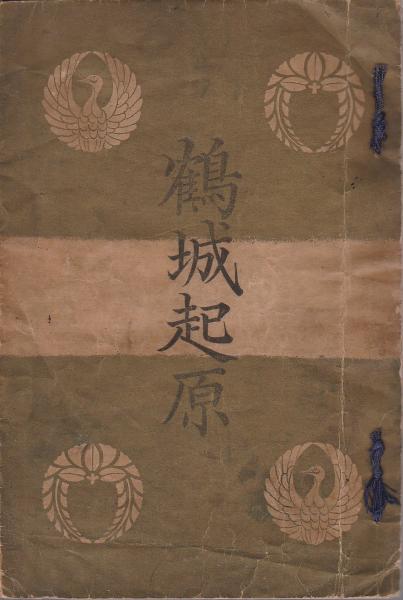 鶴城起原